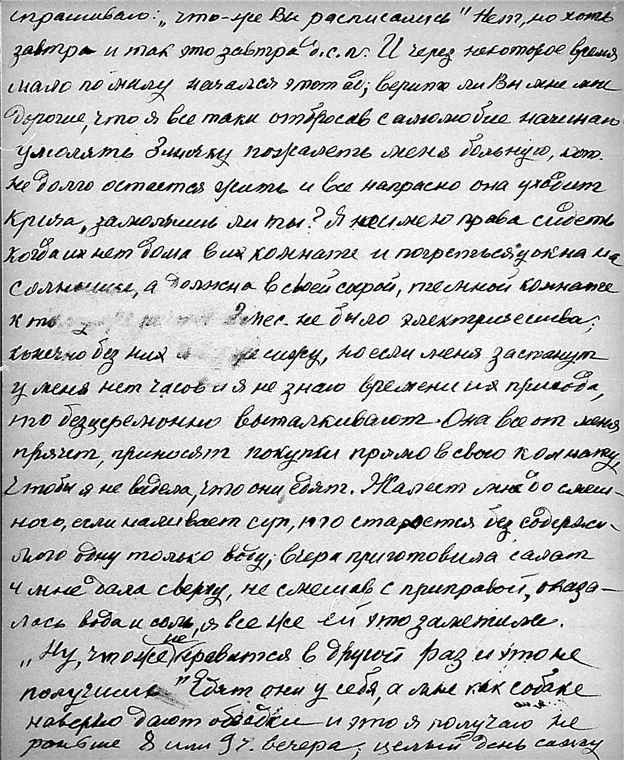 спрашиваю: „что-же Вы расписались" Нет, но хоть
завтра и так это завтра д.с.п. И через некоторое время
мало по малу начался этот ад; верите ли Вы мне мои
дорогие, что я все таки отбросив самолюбие начинаю
умолять Зиночку пожалеть меня больную, кот.
не долго остается жить и все напрасно она уходит
крича, замолчишь ли ты? Я не имею права сидеть
когда их нет дома в их комнате и погреться у окна на
солнышке, а должна в своей сырой, темной комнате
к 2 мес. не было электричества;
конечно без них я сижу, но если меня застанут
у меня нет часов и я не знаю времени их прихода,
то безцеремонно выталкивают. Она все от меня
прячет, приносят покупки прямо в свою комнату,
чтобы я не видела, что они едят. Жалеет мне до смеш-
ного, если наливает суп, то старается без содержи-
мого одну только воду; вчера приготовила салат
и мне дала сверху, не смешав с приправой, оказа-
лась вода и соль, я все же ей это заметила.
„Ну, что-же не нравится в другой раз и это не
получишь" Едят они у себя, а мне как собаке
наверно дают объедки и это я получаю не
раньше 8 или 9 ч. вечера; целый день сижу